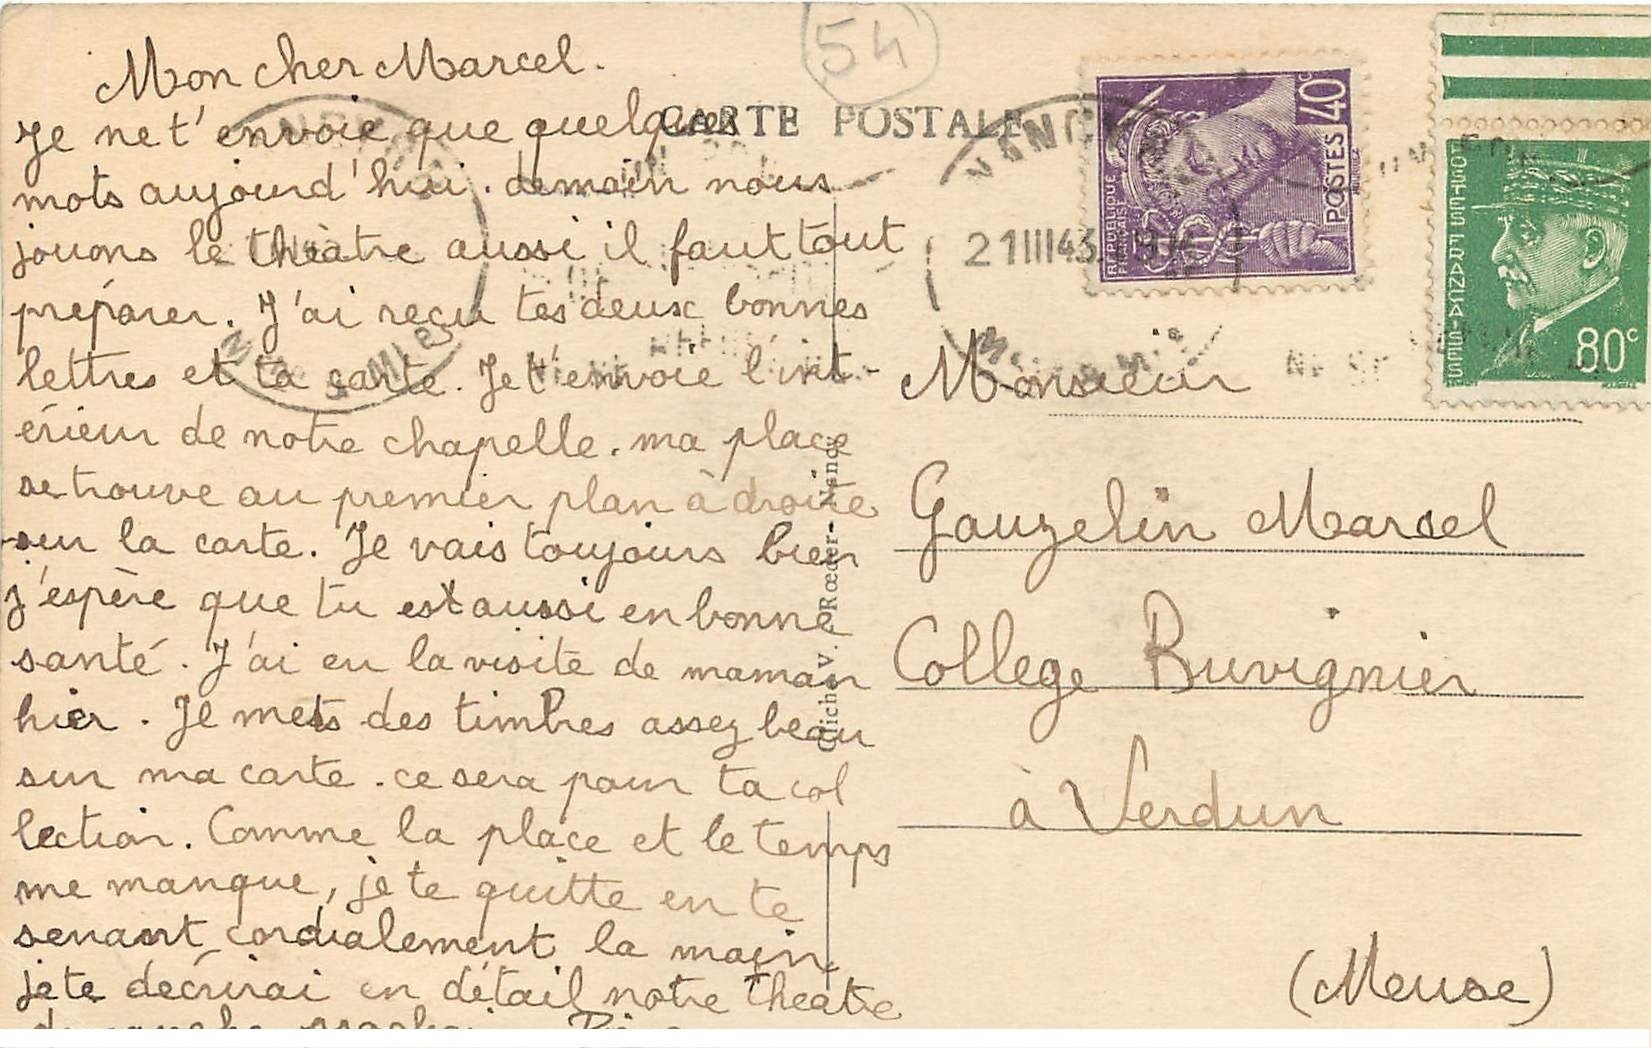 54
CARTE POSTALE
Mon cher Marcel.
Je ne t'envoie que quelques
mots aujourd'hui. demain nous
jouons le théâtre aussi il faut tout
préparer. J'ai reçu tes deux bonnes
lettres et ta carte. Je t'envoie l'int-
érieur de notre chapelle. ma place
se trouve au premier plan à droite
sur la carte. Je vais toujours bien
j'espère que tu est aussi en bonne
santé. J'ai eu la visite de maman
hier. Je mets des timbres assez beau
sur ma carte. ce sera pour ta col
lection. Comme la place et le temps
me manque, je te quitte en te
serrant cordialement la main.
je te décrirai en détail notre theatre
dimanche prochain
Cliché V. Rœder - Nancy
NANCY
21 III 43
REPUBLIQUE FRANÇAISE
POSTES 40c
POSTES FRANÇAISES
80c
Monsieur
Gauzelin Marcel
College Buvignier
à Verdun
(Meuse)